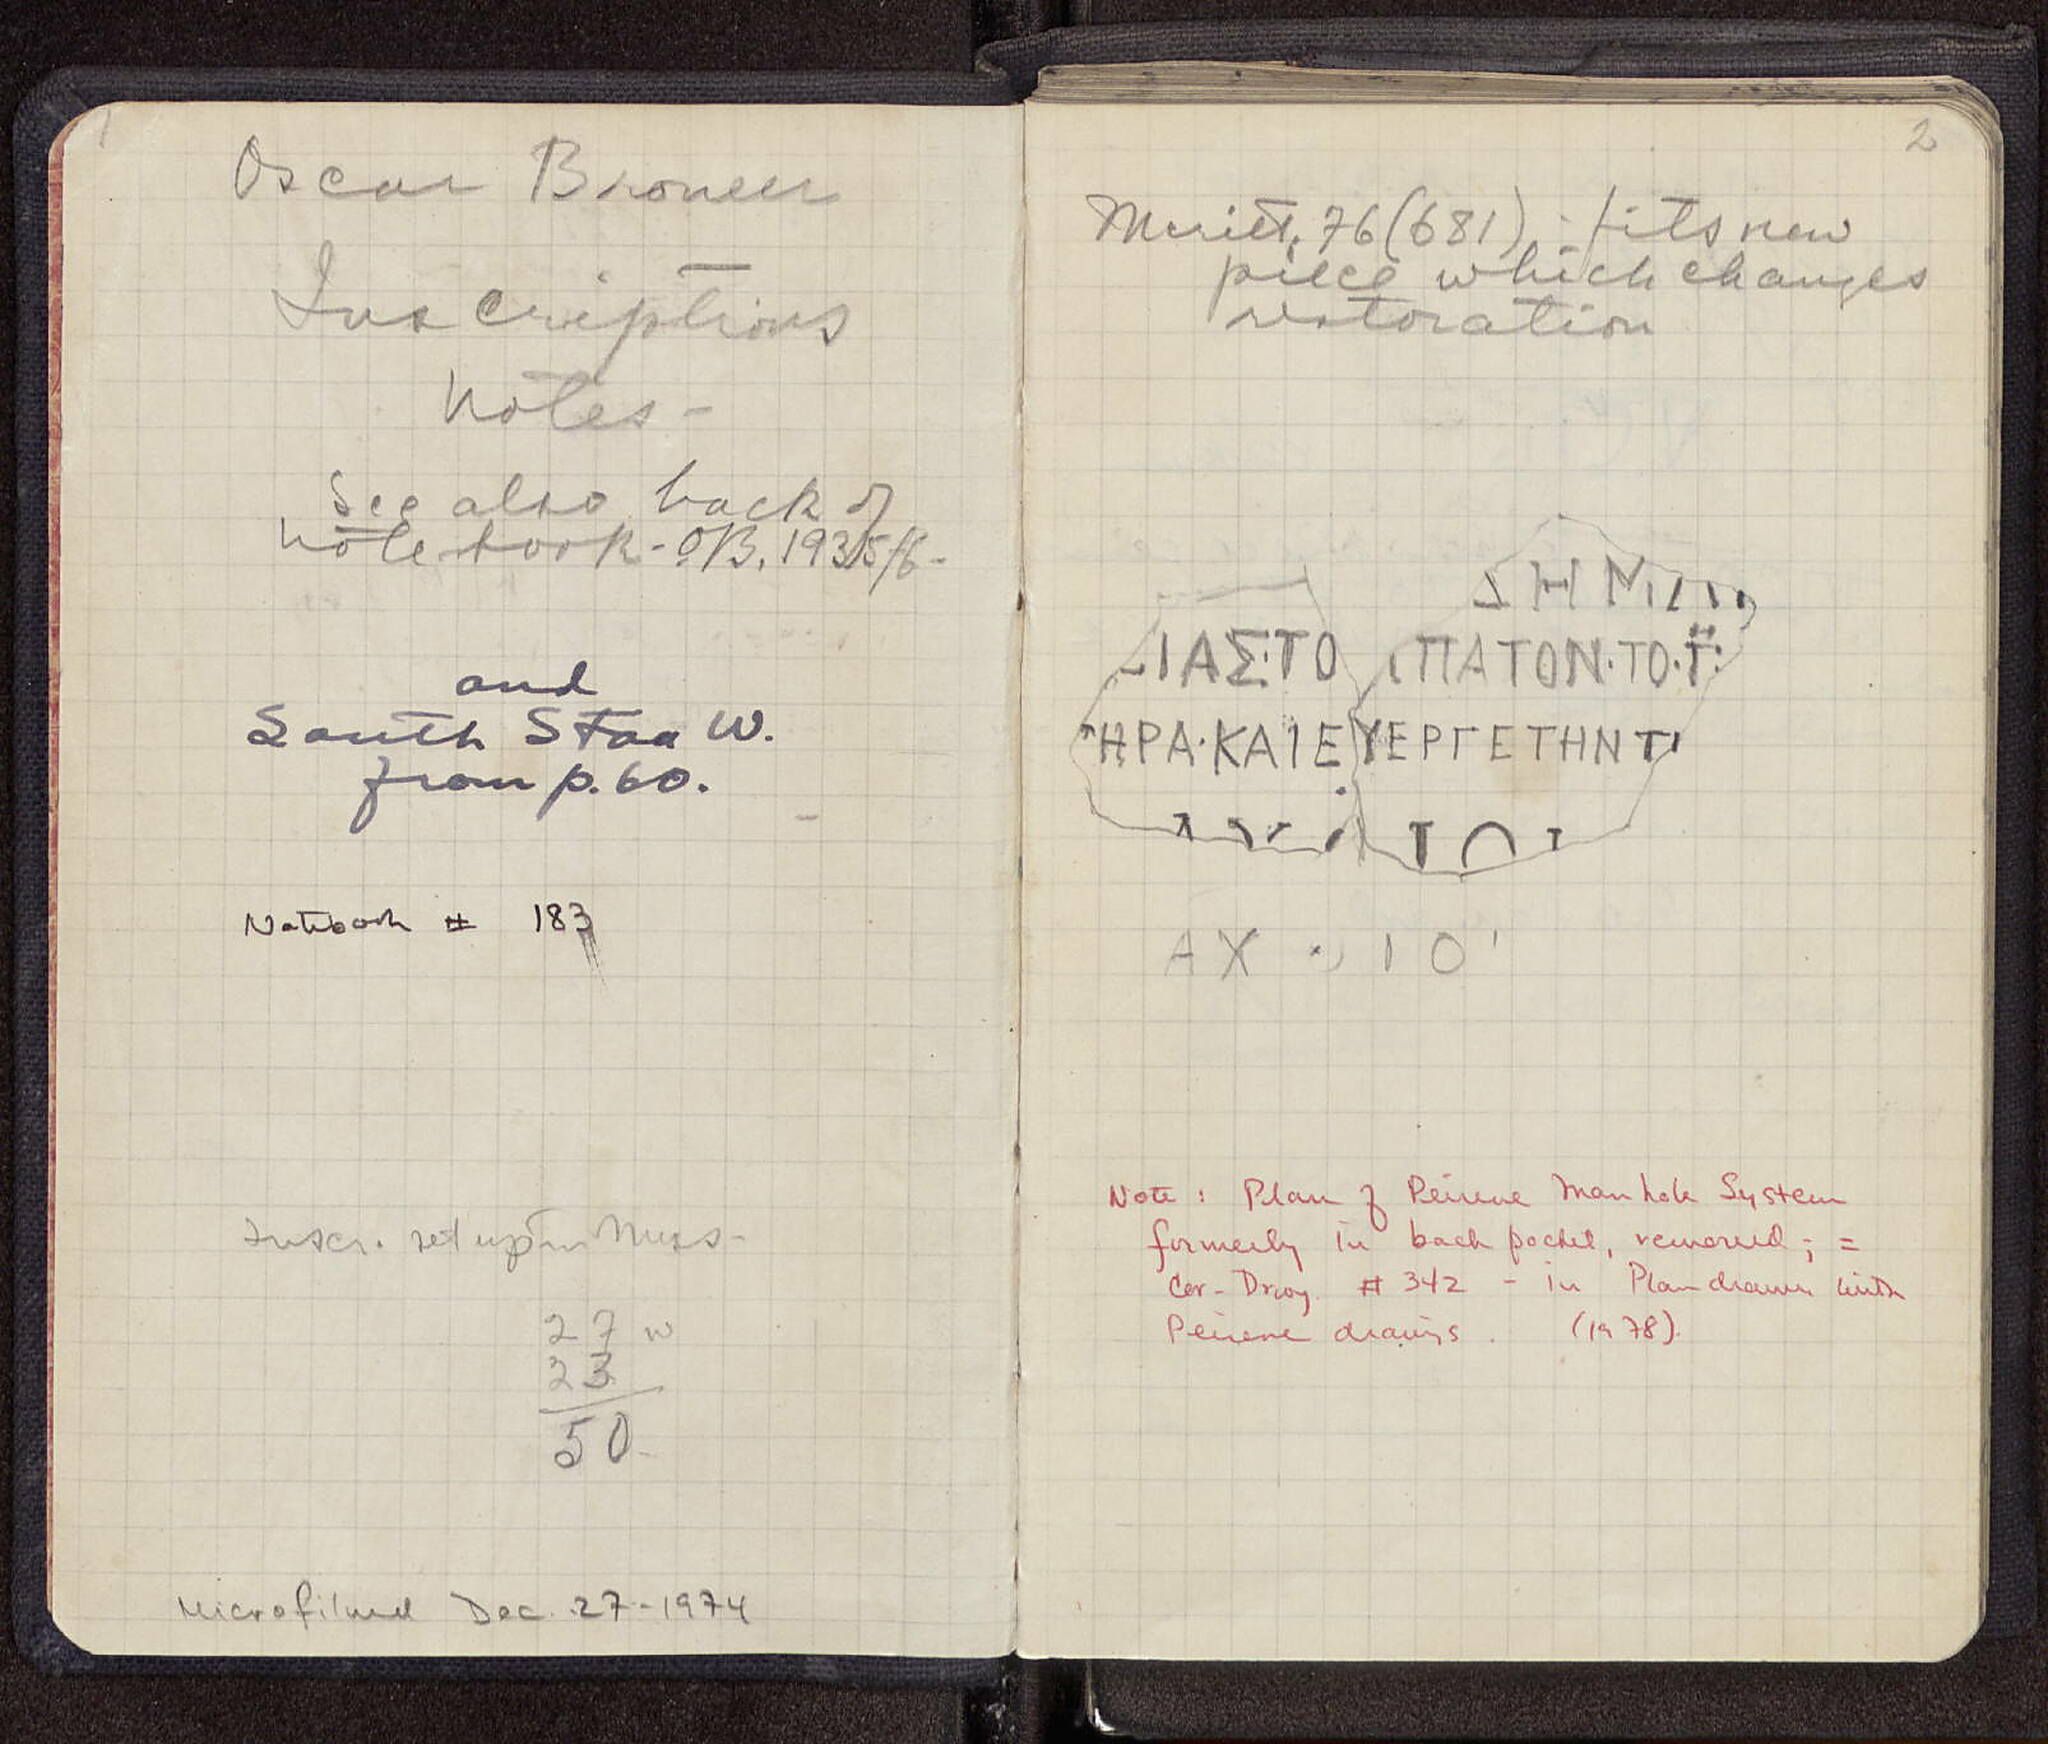 1
Oscar Broneer
Inscriptions
Notes -
See also back of
note book - OB. 1935/6 -
and
South Stoa W.
from p. 60.
Notebook # 183
Inscr. set up in Mus -
27 w
23
50
Microfilmed Dec. 27 - 1974
2
Meritt, 76 (681), - fits new
piece which changes
restoration
ΔΗΜ
ΙΑΣ·ΤΟ ΠΑΤΟΝ·ΤΟ·Γ
ΗΡΑ·ΚΑΙΕΥΕΡΓΕΤΗΝΤ
ΤΟ
ΑΧ
Note: Plan of Peirene Manhole System
formerly in back pocket, removed; =
Cor-Drwg. # 342 - in Plan drawer with
Peirene drawings. (1978).